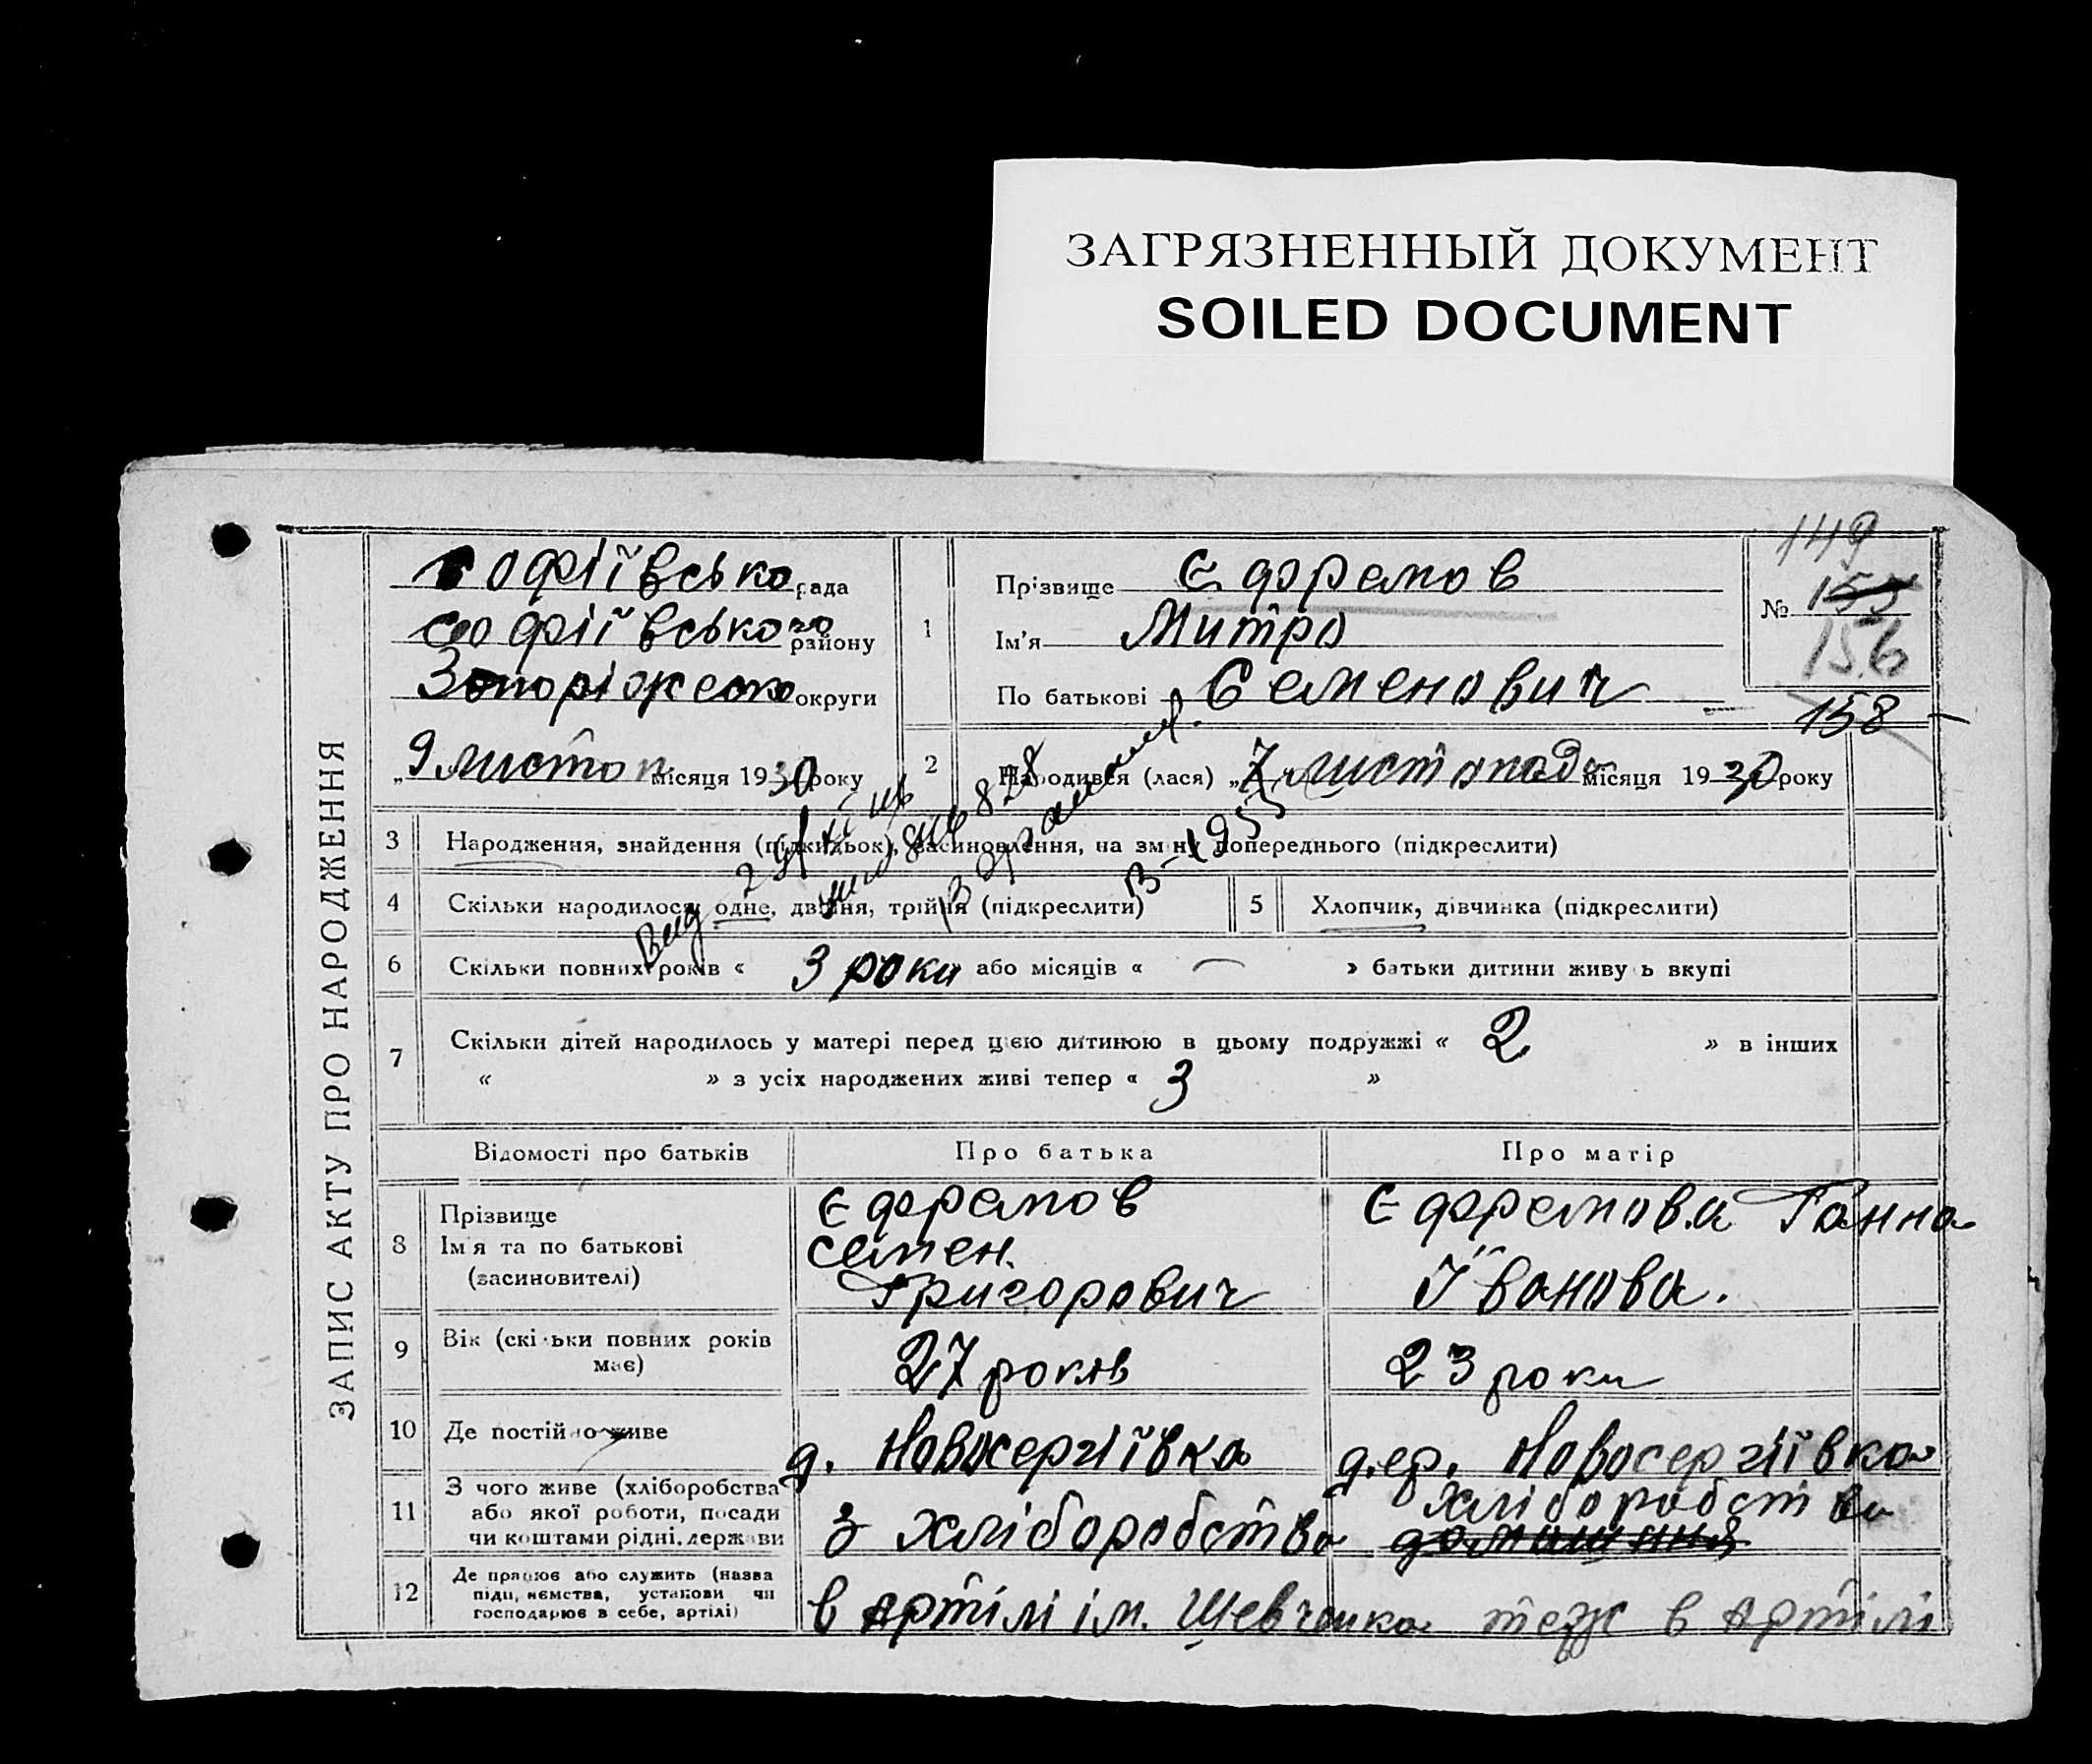 ЗАГРЯЗНЕННЫЙ ДОКУМЕНТ
SOILED DOCUMENT
ЗАПИС АКТУ ПРО НАРОДЖЕННЯ
софіївсько рада
софіївського району
округи
„9 листоп місяця 1930 року
149
№ 153
156
158
1 Прізвище Єфремов
Ім'я Митро
По батькові Семенович
2 Народився (лася) „7 листопада місяця 1930 року
3 Народження, знайдення (підкидьок), засиновлення, на зміну попереднього (підкреслити)
4 Скільки народилося: одне, двійня, трійня (підкреслити) 5 Хлопчик, дівчинка (підкреслити)
6 Скільки повних років « 3 роки » або місяців « — » батьки дитини живуть вкупі
7 Скільки дітей народилось у матері перед цією дитиною в цьому подружжі « 2 » в інших
« » з усіх народжених живі тепер « 3 »
Відомості про батьків Про батька Про матір
8 Прізвище
Ім'я та по батькові
(засиновителі)
Єфремов
Семен.
Григорович
Єфремова Ганна
Іванова.
9 Вік (скільки повних років
має)
27 років 23 роки
10 Де постійно живе д. Новосергіївка дер. Новосергіївка
11 З чого живе (хліборобства
або якої роботи, посади
чи коштами рідні, держави
З хліборобства хліборобства
домашня
12 Де працює або служить (назва
підприємства, установи чи
господарює в себе, артілі)
в артілі ім. Шевченка теж в артілі